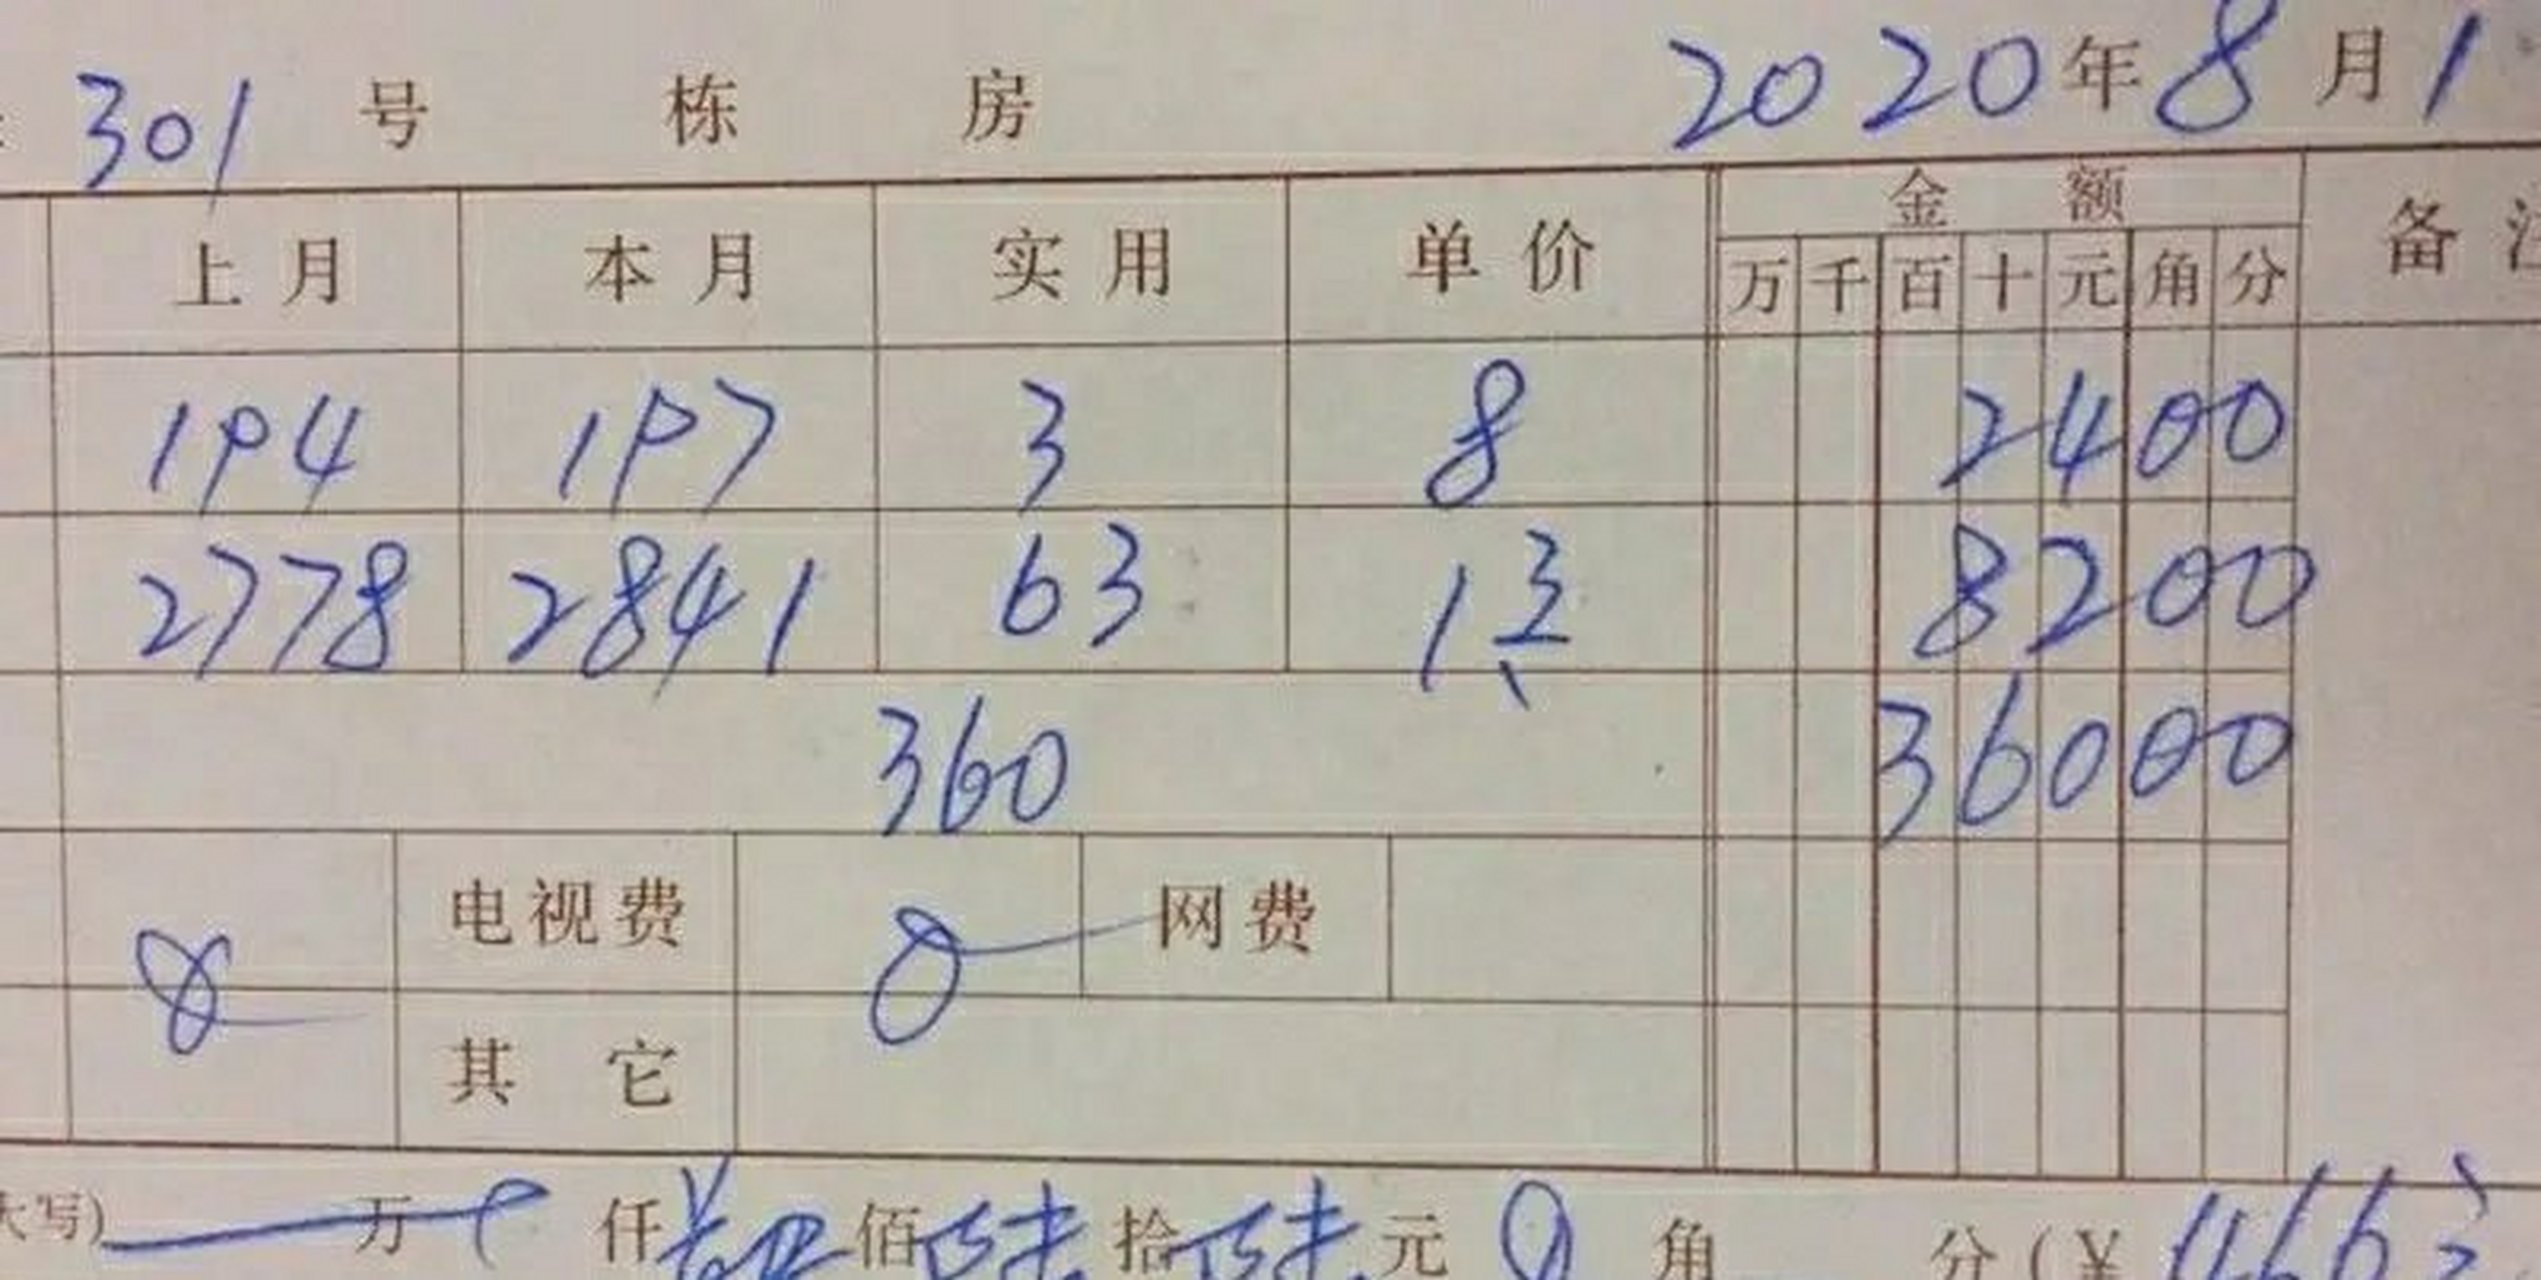 301 号 栋 房 2020年8月1
上月 本月 实用 单价 金额 备
万 千 百 十 元 角 分
194 197 3 8 2400
2778 2841 63 1 3 8200
360 36000
0 电视费 0 网费
其它
大写) 万 仟 肆 佰 陆 拾 陆 元 0 角 分(¥466